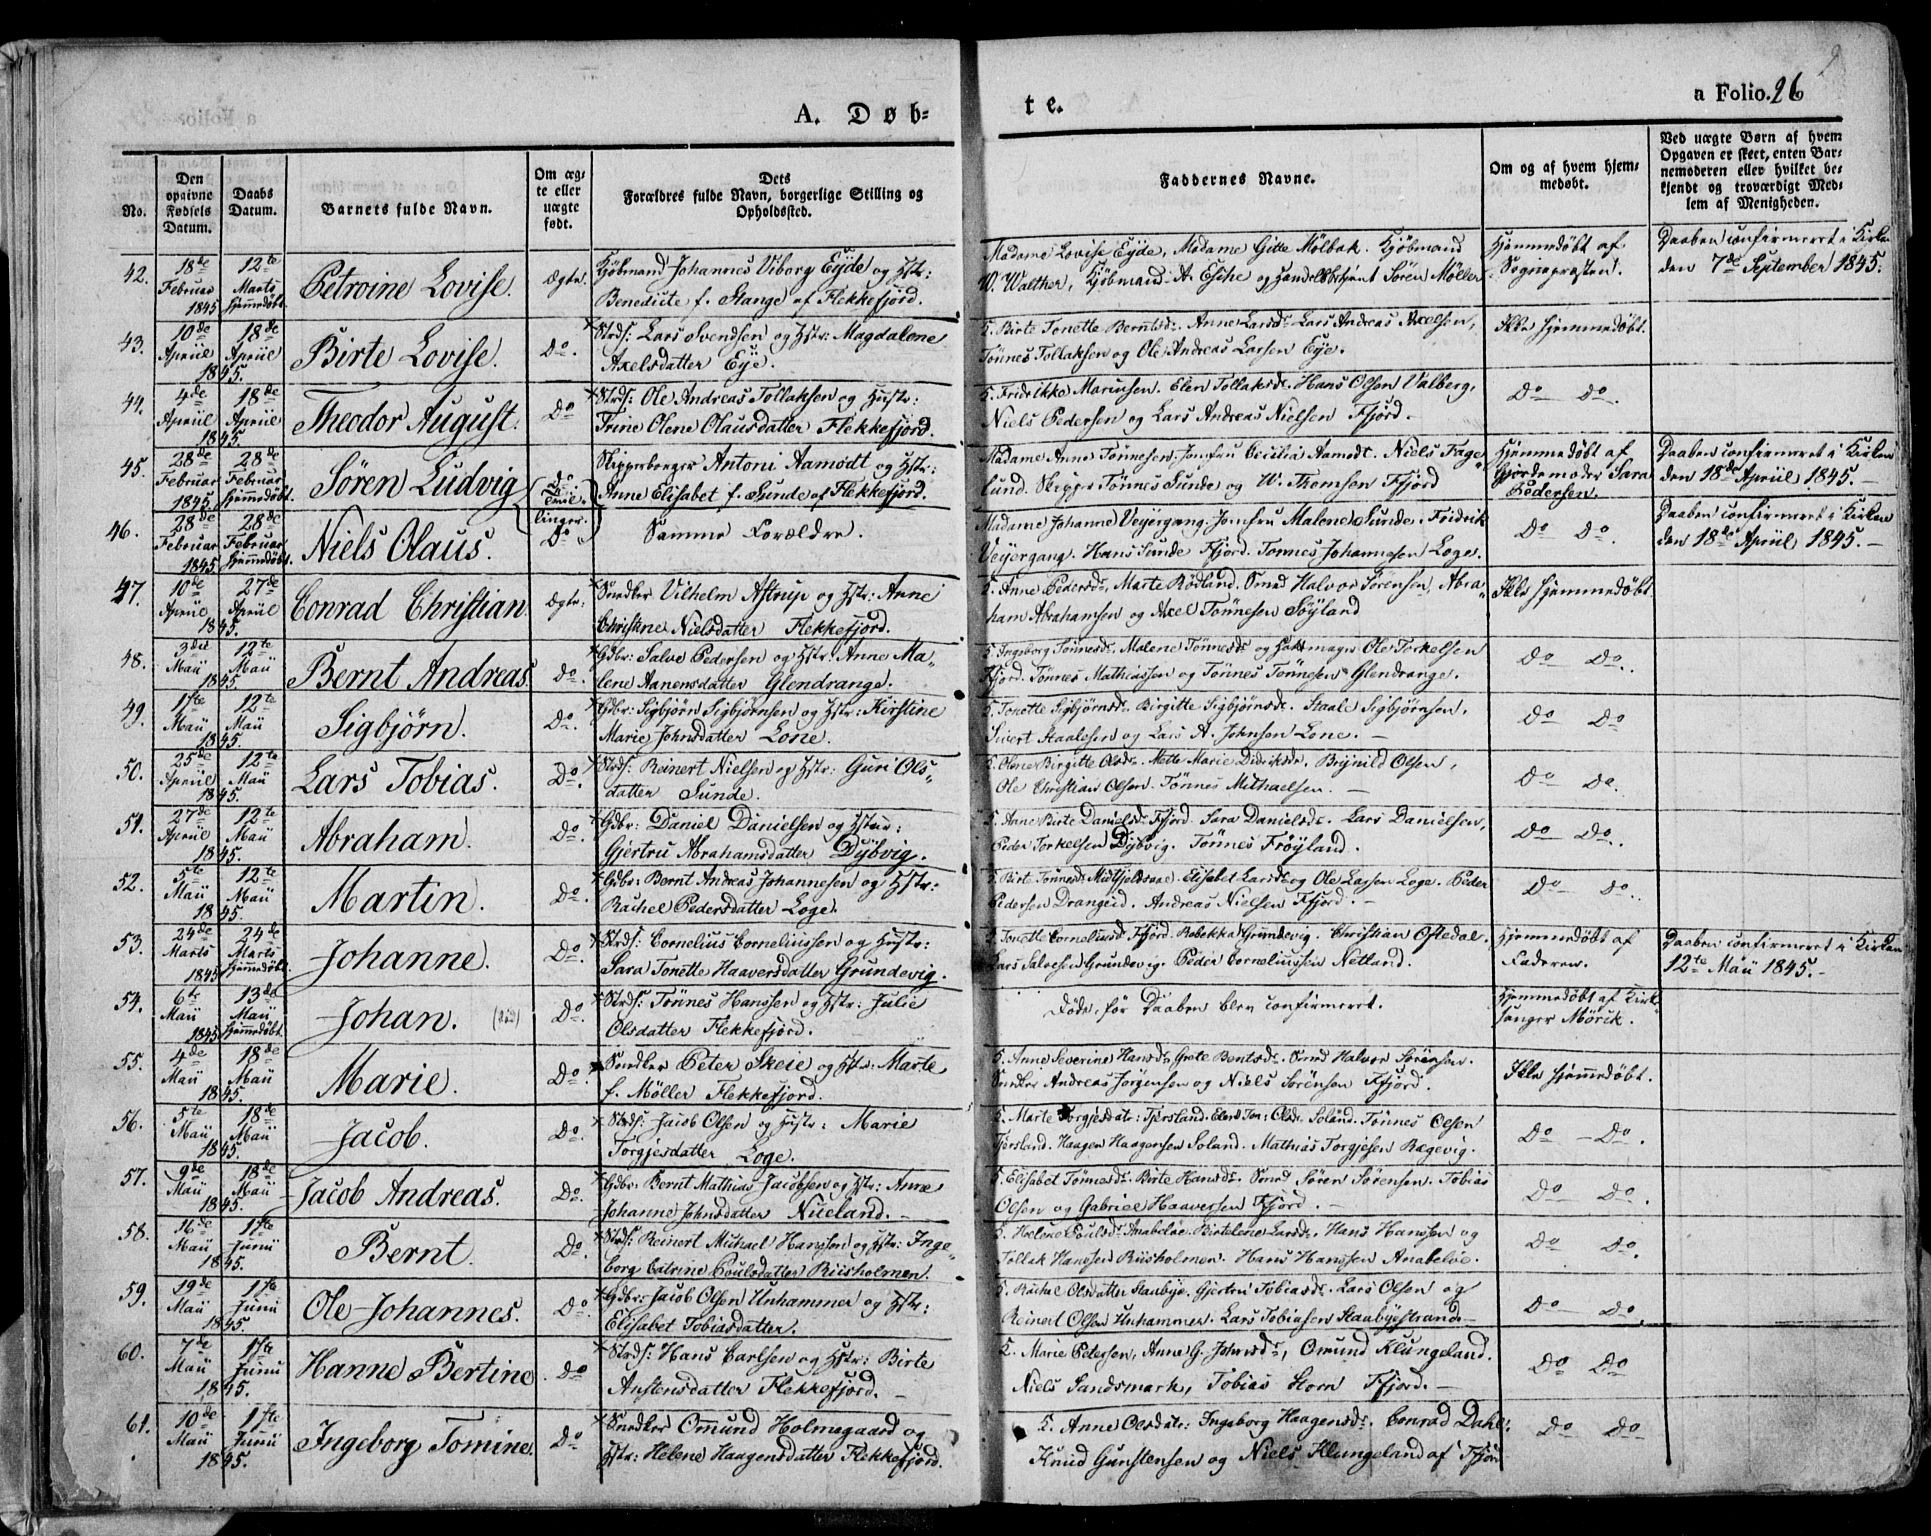 A. Døb-
te.
a Folio. 26
No.
Den opgivne Fødsels Datum.
Daabs Datum.
Barnets fulde Navn.
Om ægte eller uægte født.
Dets Forældres fulde Navn, borgerlige Stilling og Opholdssted.
Faddernes Navne.
Om og af hvem hjemmedøbt.
Ved uægte Børn af hvem Opgaven er skeet, enten Barnemoderen eller hvilket bekjendt og troværdigt Medlem af Menigheden.
42. 18de Februar 1845 12te Marts hjemmedøbt. Petroine Lovise. Ægte.
Kjøbmand Johannes Viborg Eyde og Hstr:
Benedicte f. Stange af Flekkefjord.
Madame Lovise Eyde, Madame Gitte Mølbak. Kjøbmand
W. Walther, Kjøbmand A. Eske og Handelsbetjent Søren Møller
Hjemmedøbt af Sognepræsten.
Daaben confirmeret i Kirken
den 7de September 1845.
43. 10de Apriil 18de Apriil 1845. Birte Lovise. Do.
Strds: Lars Svendsen og Hstr: Magdalene
Axelsdatter Eye.
5. Birte Tonette Berntsdr. Anne Larsdr. Lars Andreas Axelsen,
Tønnes Tollaksen og Ole Andreas Larsen Eye.
Ikke hjemmedøbt.
44. 4de Apriil 18de Apriil 1845. Theodor August. Do
Strds: Ole Andreas Tollaksen og Hustr:
Trine Olene Olausdatter Flekkefjord.
5. Fridrikke Mariusen. Elen Tollaksdr. Hans Olsen Valberg,
Niels Pedersen og Lars Andreas Nielsen Fjord.
Do Do.
45. 28de Februar 1845. 28de Februar hjemmedøbt. Søren Ludvig Do.
Skipperborger Antoni Aamodt og Hstr:
Anne Elisabet f. Sunde af Flekkefjord.
Madame Anne Tønnesen. Jomfru Cicilia Aamodt. Niels Fage-
lund. Skipper Tønnes Sunde og W. Thomsen Fjord
Hjemmedøbt af
Gjordemoder Sara
Pedersen.
Daaben confirmeret i Kirken
den 18de Apriil 1845.
46. 28de Februar 1845 28de Februar hjemmedøbt. Niels Olaus. Tvillinger. Do
Samme Forældre.
Madame Johanne Veyergang. Jomfru Malene Sunde. Fridrik
Veyergang. Hans Sunde Fjord. Tønnes Johannesen Loge.
Do Do.
Daaben confirmeret i Kirken
den 18de Apriil 1845.
47. 10de Apriil 27de Apriil 1845. Conrad Christian Ægte.
Snedker Vilhelm Astrup og Hstr: Anne
Christine Nielsdatter Flekkefjord.
5. Anne Pedersdr. Marte Rødland. Smed Halvor Sørensen, Abra-
ham Abrahamsen og Axel Tønnesen Søyland
Ikke hjemmedøbt.
48. 3die Maii 12te Maii 1845. Bernt Andreas. Do.
Gdbr: Salve Pedersen og Hstr: Anne Ma-
lene Aanensdatter Glendrange.
5. Ingeborg Tønnesdr. Malene Tønnesdr. og Hattmager Ole Torkelsen
Fjord. Tønnes Mathiassen og Tønnes Tønnesen Glendrange.
Do Do.
49. 1ste Maii 12te Maii 1845. Sigbjørn. Do.
Gdbr: Sigbjørn Sigbjørnsen og Hstr: Kirstine
Marie Johnsdatter Lone.
5. Tonette Sigbjørnsdr. Birgitte Sigbjørnsdr. Staale Sigbjørnsen.
Sivert Staalesen og Lars A. Johnsen Lone.
Do Do
50. 25de Apriil 12te Maii 1845. Lars Tobias. Do.
Strds: Reinert Nielsen og Hstr: Guri Ols-
datter Sunde.
5. Olene Birgitte Olsdr. Mette Marie Didriksdr. Brynild Olsen,
Ole Christian Olsen. Tønnes Mithaelsen.
Do Do.
51. 27de Apriil 12te Maii 1845. Abraham. Do.
Gdbr: Daniel Danielsen og Hstr:
Gjertru Abrahamsdatter Dybvig.
5. Anne Birte Danielsdr. Fjord. Sara Danielsdr. Lars Danielsen,
Peder Torkelsen Dybvig. Tønnes Frøyland.
Do Do.
52. 5te Maii 12te Maii 1845. Martin. Do.
Gdbr: Bernt Andreas Johannesen og Hstr:
Rachel Pedersdatter Loge.
5. Birte Tønnesdr. Midtfjeldsaae. Elisabet Larsdr. og Ole Larsen Loge. Peder
Pedersen Drangeid. Andreas Nielsen Fjord.
Do Do.
53. 24de Marts 1845 24de Marts hjemmedøbt. Johanne. Do.
Strds: Cornelius Corneliussen og Hustr:
Sara Tonette Haaversdatter Grundevig.
Tonette Corneliusd. Fjord. Rebekka Grundevig. Christian Ofstedal.
Lars Salvesen Grundevig. Peder Corneliussen Netland.
Hjemmedøbt af
Faderen.
Daaben confirmeret i Kirken
12te Maii 1845.
54. 6te Maii 1845 13de Maii hjemmedøbt. Johan. Do.
Strds: Tønnes Hanssen og Hstr: Julie
Olsdatter Flekkefjord.
Døde, før Daaben blev confirmeret.
Hjemmedøbt af Kirke-
sanger Mörik.
55. 4de Maii 18de Maii 1845. Marie. Do.
Snedker Peter Skeie og Hstr: Marte
f. Møller Flekkefjord.
5. Anne Severine Hansdr. Grete Bentsdr. Smed Halvor Sørensen.
Snedker Andreas Jørgensen og Niels Sørensen Fjord.
Ikke hjemmedøbt.
56. 5te Maii 18de Maii 1845. Jacob. Do.
Strds: Jacob Olsen og Hustr: Marie
Torgjesdatter Loge.
5. Marte Torgjesdatr: Tjersland. Elen Ton: Olsdr. Soland. Tønnes Olsen
Tjersland. Haagen Haagensen Soland. Mathias Torgjesen Rægevig.
Do Do.
57. 9de Maii 18de Maii 1845. Jacob Andreas. Do.
Gdbr: Bernt Mathias Jacobsen og Hstr: Anne
Johanne Johnsdatter Nueland.
5. Elisabet Tønnesdr. Birte Hansdr. Smed Søren Sørensen. Tobias
Olsen og Gabriel Haaversen Fjord.
Do Do.
58. 16de Maii 1ste Junii 1845. Bernt. Do.
Strds: Reinert Michael Hanssen og Hstr: Inge-
borg Catrine Poulsdatter Riisholmen.
5. Helene Poulsdr. Anabeløe. Birtelene Larsdr. Hans Hanssen og
Tollak Hanssen Riisholmen. Hans Hanssen Anabeløe.
Do Do.
59. 19de Maii 1ste Junii 1845. Ole Johannes. Do.
Gdbr: Jacob Olsen Unhammer og Hstr:
Elisabet Tobiasdatter.
5. Rachel Olsdatter Staubye. Gjertru Tobiasdr. Lars Olsen og
Reinert Olsen Unhammer. Lars Tobiasen Staubyestrand.
Do Do
60. 7de Maii 1ste Junii 1845. Hanne Bertine. Do
Strds: Hans Carlsen og Hstr: Birte
Anstensdatter Flekkefjord.
5. Marie Petersen, Anne G. Johnsdr, Omund Klungeland.
Niels Sandsmark, Tobias Storm Fjord.
Do Do
61. 10de Maii 1ste Junii 1845. Ingeborg Tomine. Do
Snedker Omund Holmegaard og
Hstr: Helene Haagensdatter Flekkefjord.
5. Anne Olsdatr: Ingeborg Haagensdr. Conrad Dahl:
Knud Gunstensen og Niels Klungeland af Fjord
Do Do